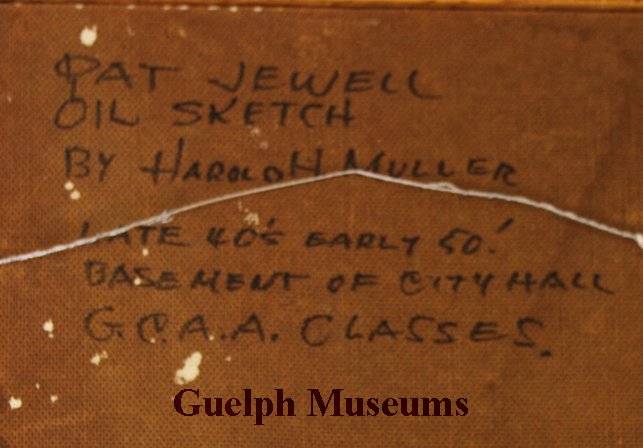 PAT JEWELL
OIL SKETCH
BY HAROLD H MULLER
LATE 40'S EARLY 50'
BASEMENT OF CITY HALL
G.C.A.A. CLASSES.
Guelph Museums